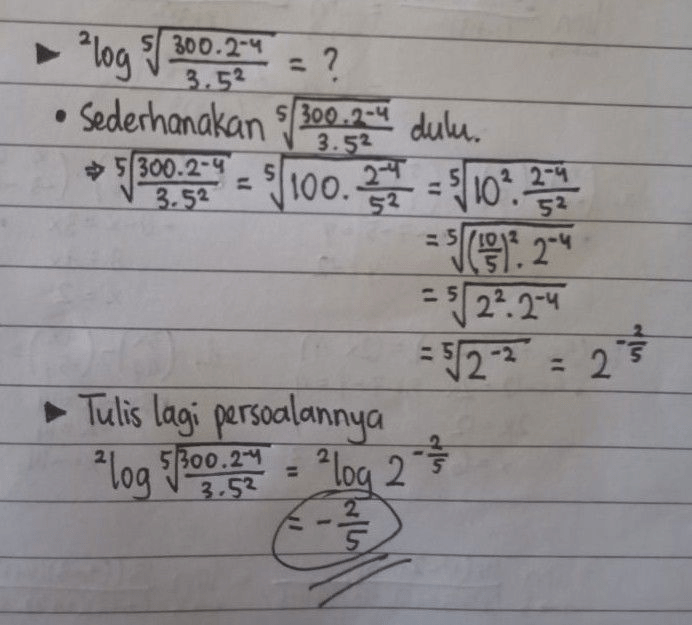 ► ²log ⁵√(300.2⁻⁴ / 3.5²) = ?
• Sederhanakan ⁵√(300.2⁻⁴ / 3.5²) dulu.
⇒ ⁵√(300.2⁻⁴ / 3.5²) = ⁵√(100. 2⁻⁴ / 5²) = ⁵√(10². 2⁻⁴ / 5²)
= ⁵√((10/5)². 2⁻⁴)
= ⁵√(2². 2⁻⁴)
= ⁵√(2⁻²) = 2^(-2/5)
► Tulis lagi persoalannya
²log ⁵√(300.2⁻⁴ / 3.5²) = ²log 2^(-2/5)
= -2/5